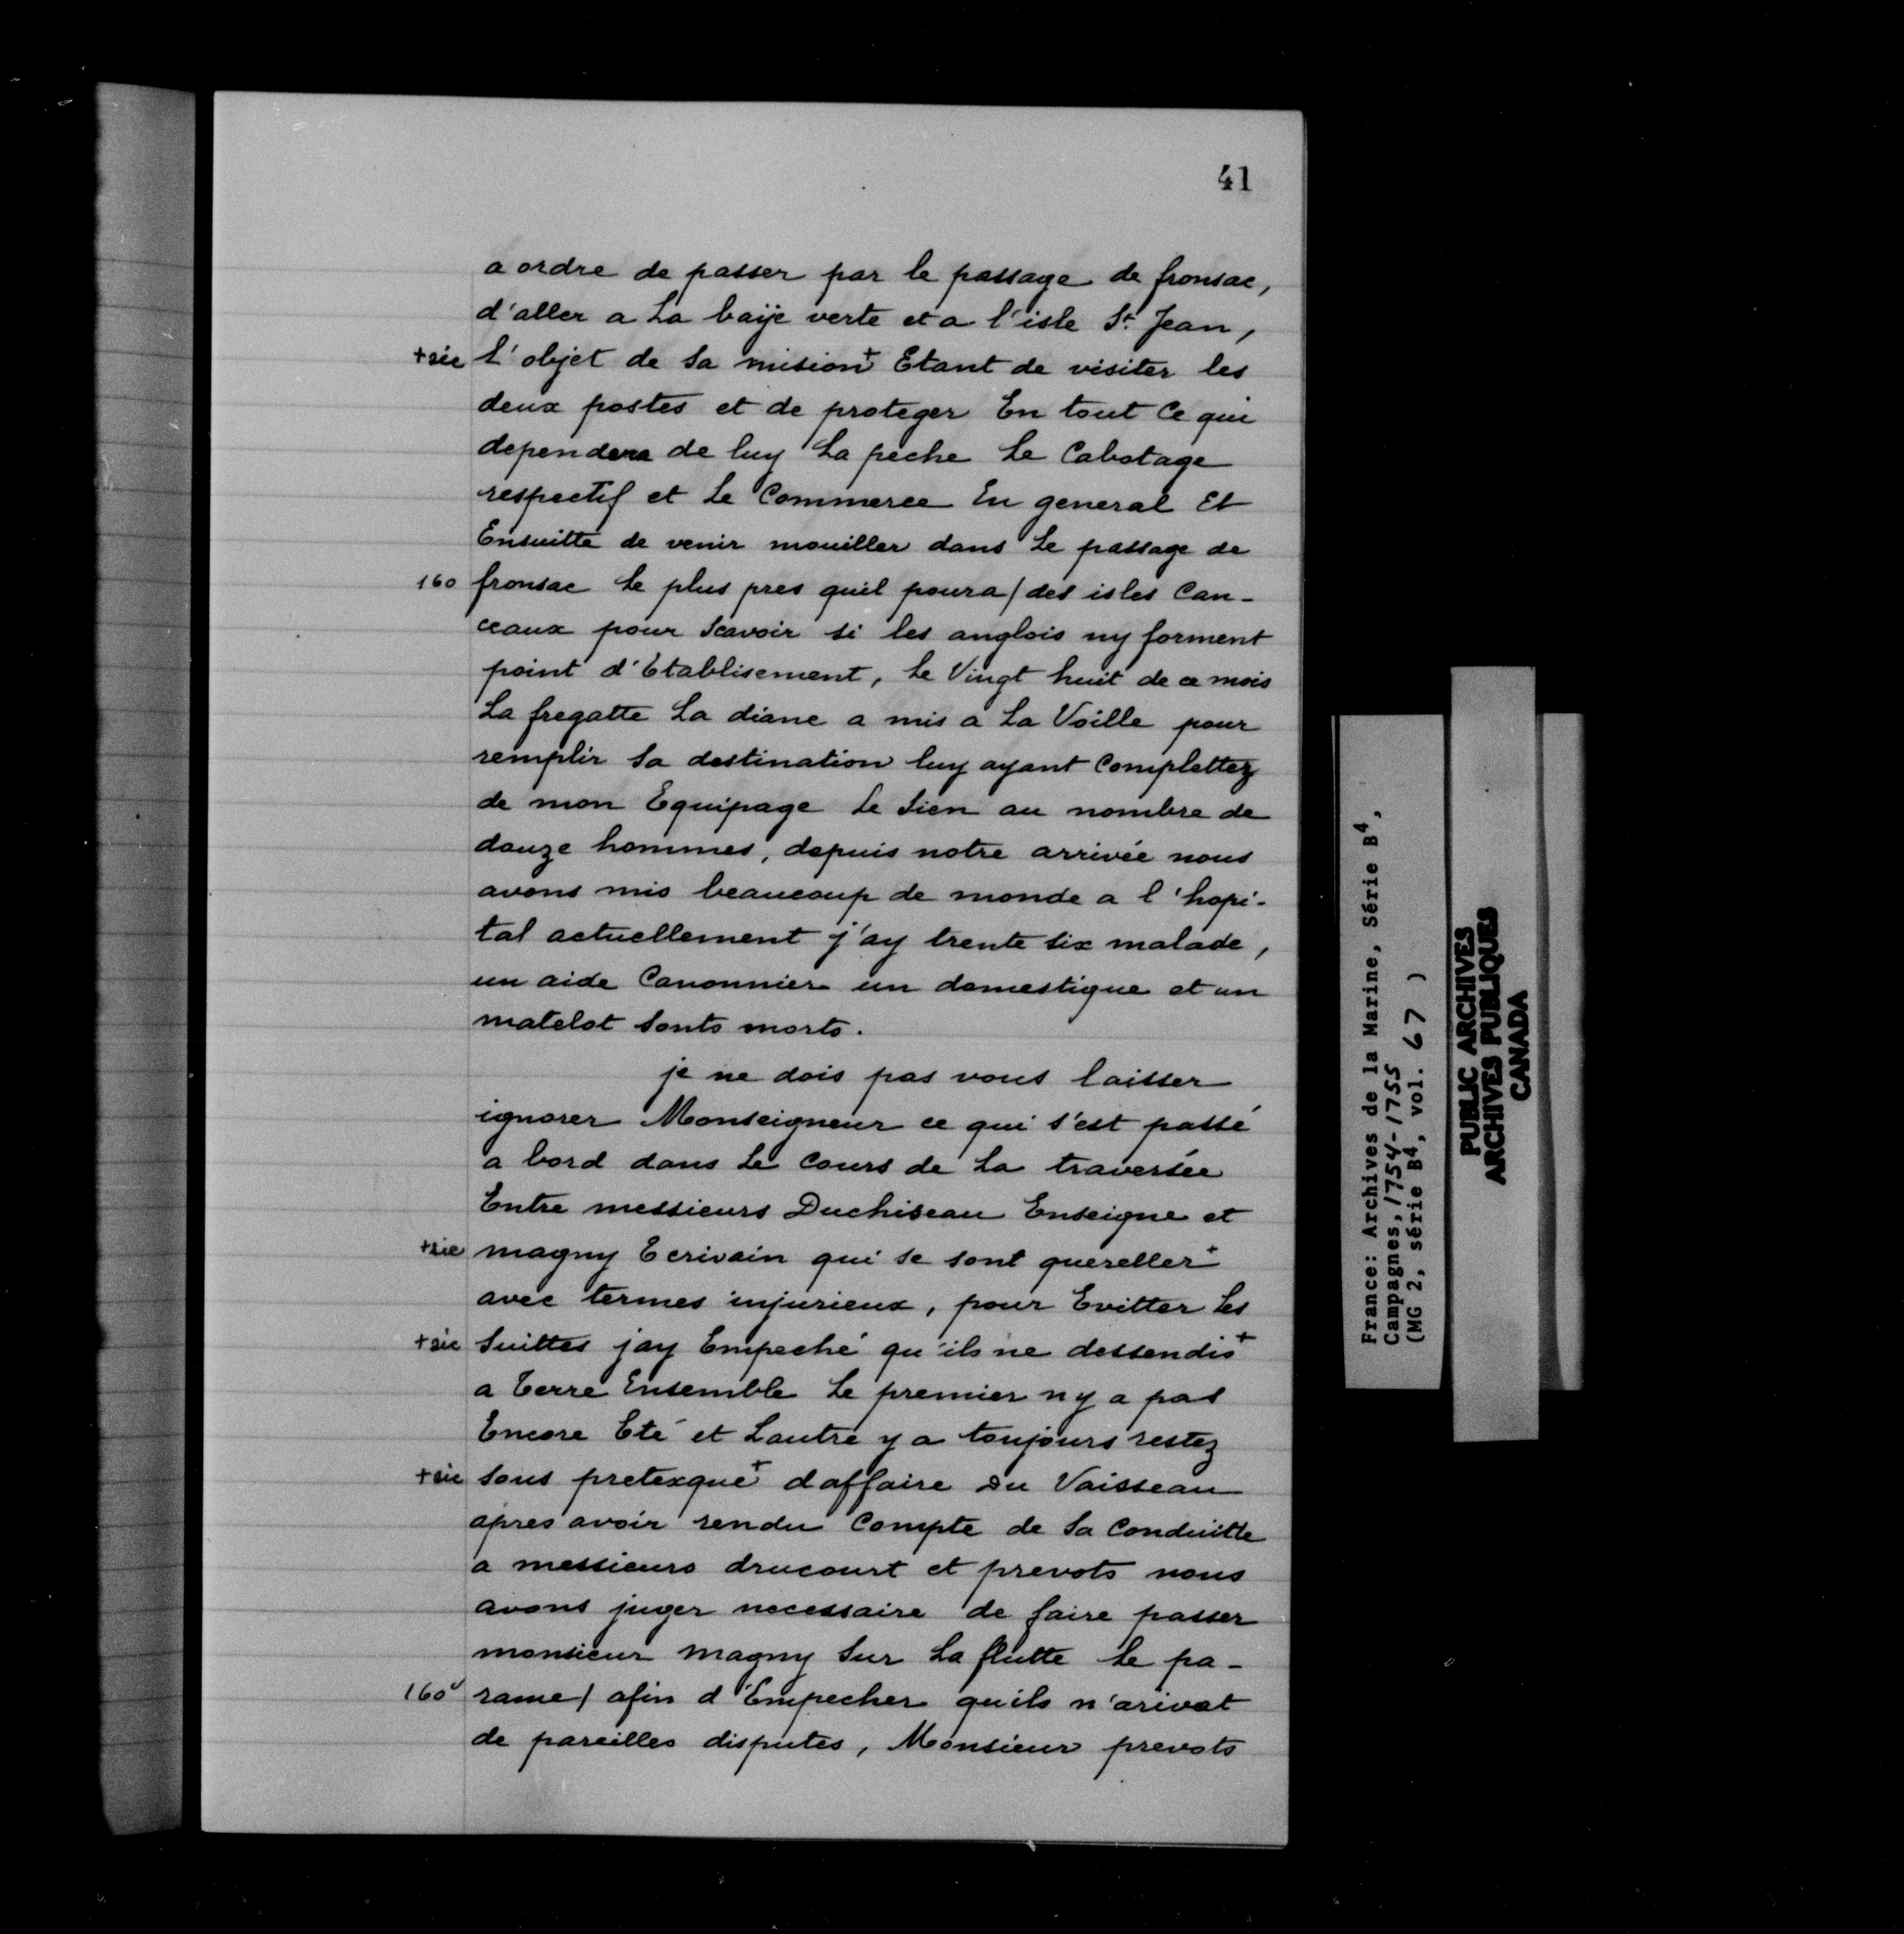 41
a ordre de passer par le passage de fronsac,
d'aller a La baÿe verte et a l'isle St. Jean,
+sic L'objet de Sa mision+ Etant de visiter les
deux postes et de proteger En tout Ce qui
dependera de luy La peche Le Cabotage
respectif et Le Commerce En general Et
Ensuitte de venir mouiller dans Le passage de
160 fronsac Le plus pres quil poura / des isles Can-
ceaux pour Scavoir si les anglois ny forment
point d'Etablisement, Le Vingt huit de ce mois
La fregatte La diane a mis a La Voille pour
remplir Sa destination luy ayant Complettez
de mon Equipage Le Sien au nombre de
douze hommes, depuis notre arrivée nous
avons mis beaucoup de monde a l'hopi-
tal actuellement j'ay trente six malade,
un aide Canonnier un domestique et un
matelot Sonts morts.
je ne dois pas vous laisser
ignorer Monseigneur ce qui s'est passé
a bord dans Le Cours de La traversée
Entre messieurs Duchiseau Enseigne et
+sic magny Ecrivain qui se sont quereller+
avec termes injurieux, pour Evitter Les
+sic Suittes jay Empeché qu'ils ne dessendis+
a Terre Ensemble Le premier ny a pas
Encore Eté et Lautre y a toujours restez
+sic sous pretexque+ daffaire Du Vaisseau
apres avoir rendu Compte de Sa Conduitte
a messieurs drucourt et prevots nous
avons juger necessaire de faire passer
monsieur magny Sur La flutte Le pa-
160v rame / afin d'Empecher quils n'arivat
de pareilles disputes, Monsieur prevots
France: Archives de la Marine, Série B4,
Campagnes, 1754-1755
(MG 2, série B4, vol. 67 )
PUBLIC ARCHIVES
ARCHIVES PUBLIQUES
CANADA